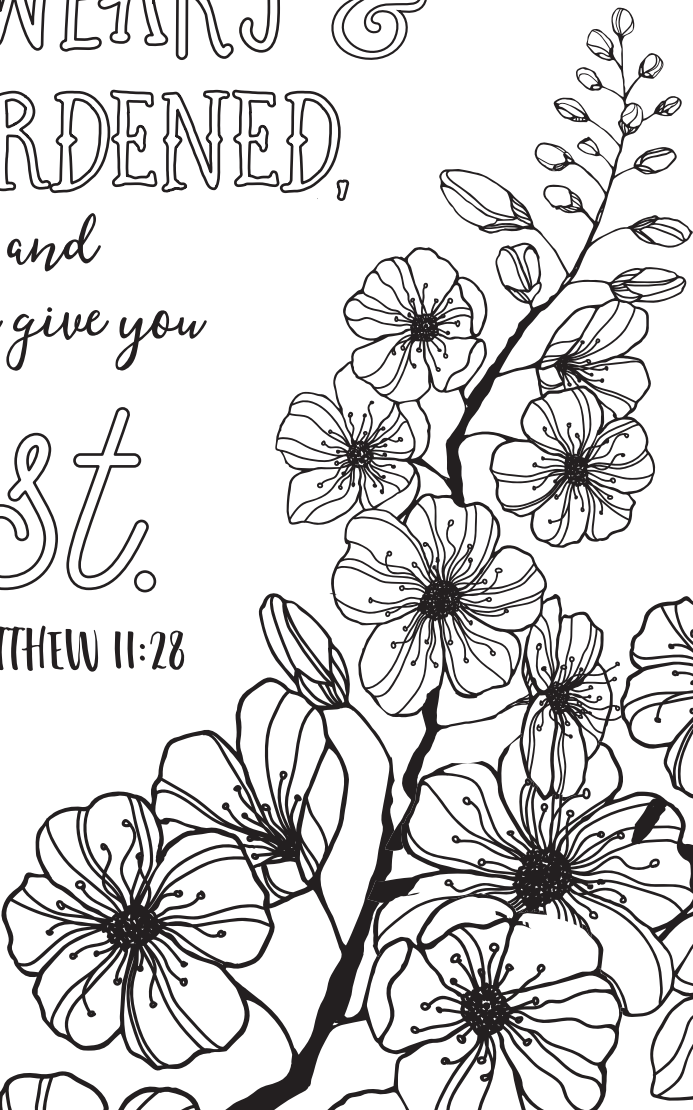 WEARY &
RDENED,
and
give you
st.
TTHEW 11:28